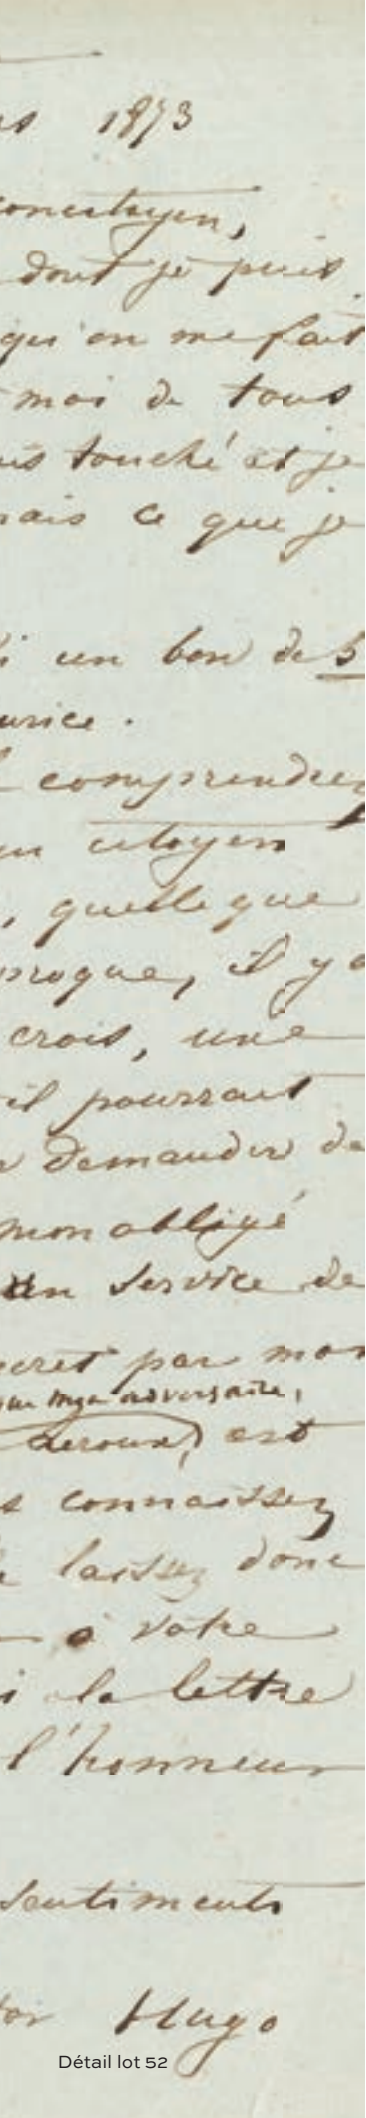 rs 1873
concitoyen,
dont je puis
qu'on me fait
moi de tous
uis touché et je
rais ce que je
i un bon de 5
urice.
comprendrez
un citoyen
, quelle que
proque, il y a
crois, une
il pourrait
demander de
mon obligé
un service de
cret par mon
adversaire,
Leroux) est
s connaissez
laissez donc
à votre
i la lettre
l'honneur
sentiments
tor Hugo
Détail lot 52